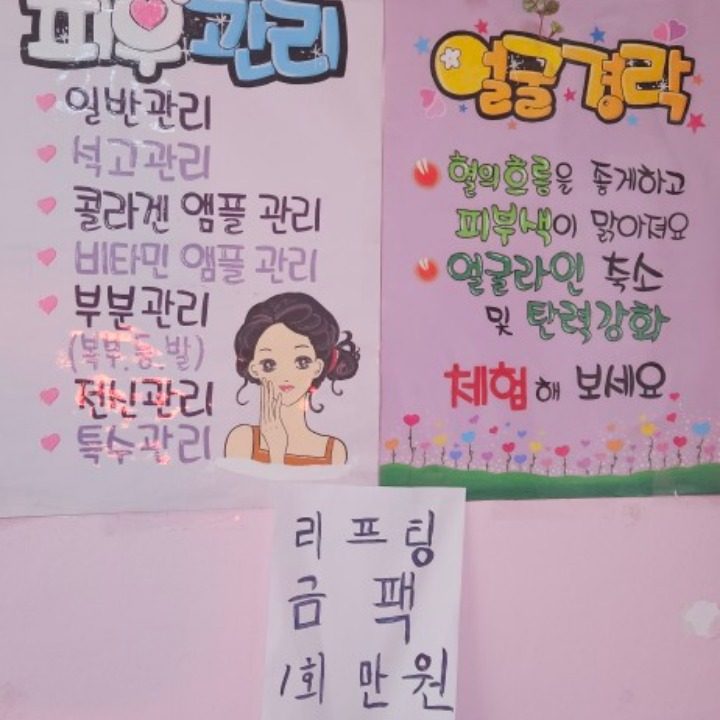 피부관리
일반관리
석고관리
콜라겐 앰플 관리
비타민 앰플 관리
부분관리
(복부.등.발)
전신관리
특수관리
얼굴경락
혈의흐름을 좋게하고
피부색이 맑아져요
얼굴라인 축소
및 탄력강화
체험해 보세요
리프팅
금팩
1회 만원